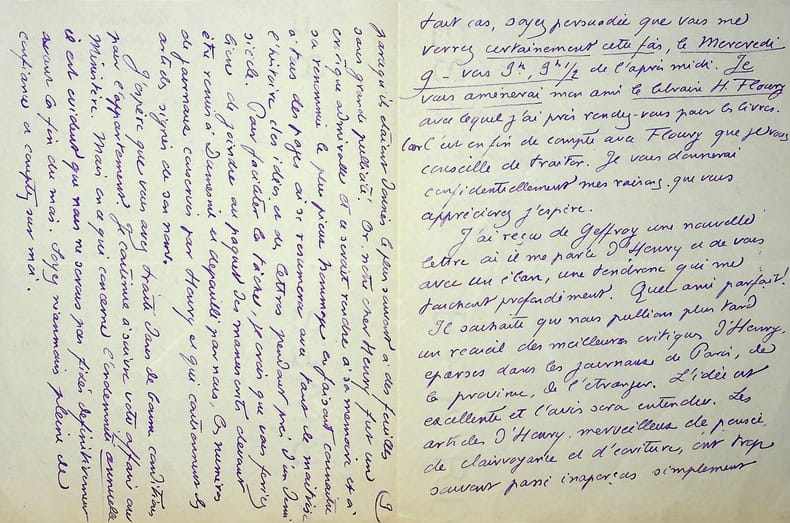 tout cas, soyez persuadée que vous me
verrez certainement cette fois, le Mercredi
9 - vers 3h, 3h 1/2 de l'après midi. Je
vous amènerai mon ami le libraire H. Floury
avec lequel j'ai pris rendez-vous pour les livres.
Car c'est en fin de compte avec Floury que je vous
conseille de traiter. Je vous donnerai
confidentiellement mes raisons que vous
apprécierez j'espère.
J'ai reçu de Geffroy une nouvelle
lettre où il me parle d'Henry et de vous
avec un élan, une tendresse qui me
touchent profondément. Quel ami parfait!
Il souhaite que nous publions plus tard
un recueil des meilleures critiques d'Henry,
eparses dans les journaux de Paris, de
la province, de l'étranger. L'idée est
excellente et l'avis sera entendu. Les
articles d'Henry, merveilleux de pensée,
de clairvoyance et d'écriture, ont trop
souvent passé inaperçus simplement
parcequ'ils étaient donnés le plus souvent à des feuilles
sans grande publicité. Or notre cher Henry fut un
critique admirable et ce serait rendre à sa mémoire et à
sa renommée le plus pieux hommage en faisant connaître
à tous des pages où se resumera avec tant de maîtrise
l'histoire des idées et des lettres pendant près d'un demi
siècle. Pour faciliter la tâche, je crois que vous feriez
bien de joindre au paquet des manuscrits devant
être remis à Dumesnil et depouillé par nous, les numéros
de journaux conservés par Henry et qui contiennent des
articles signés de son nom.
J'espère que vous avez traité dans de bonnes conditions
pour l'appartement. Je continue à suivre votre affaire au
Ministère. Mais en ce qui concerne l'indemnité annuelle
il est évident que nous ne serons pas fixés définitivement
avant la fin de mai. Soyez néanmoins pleine de
confiance et comptez sur moi.